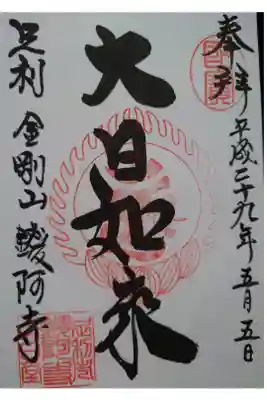 奉拝 平成二十九年五月五日
大日如来
足利 金剛山 鑁阿寺